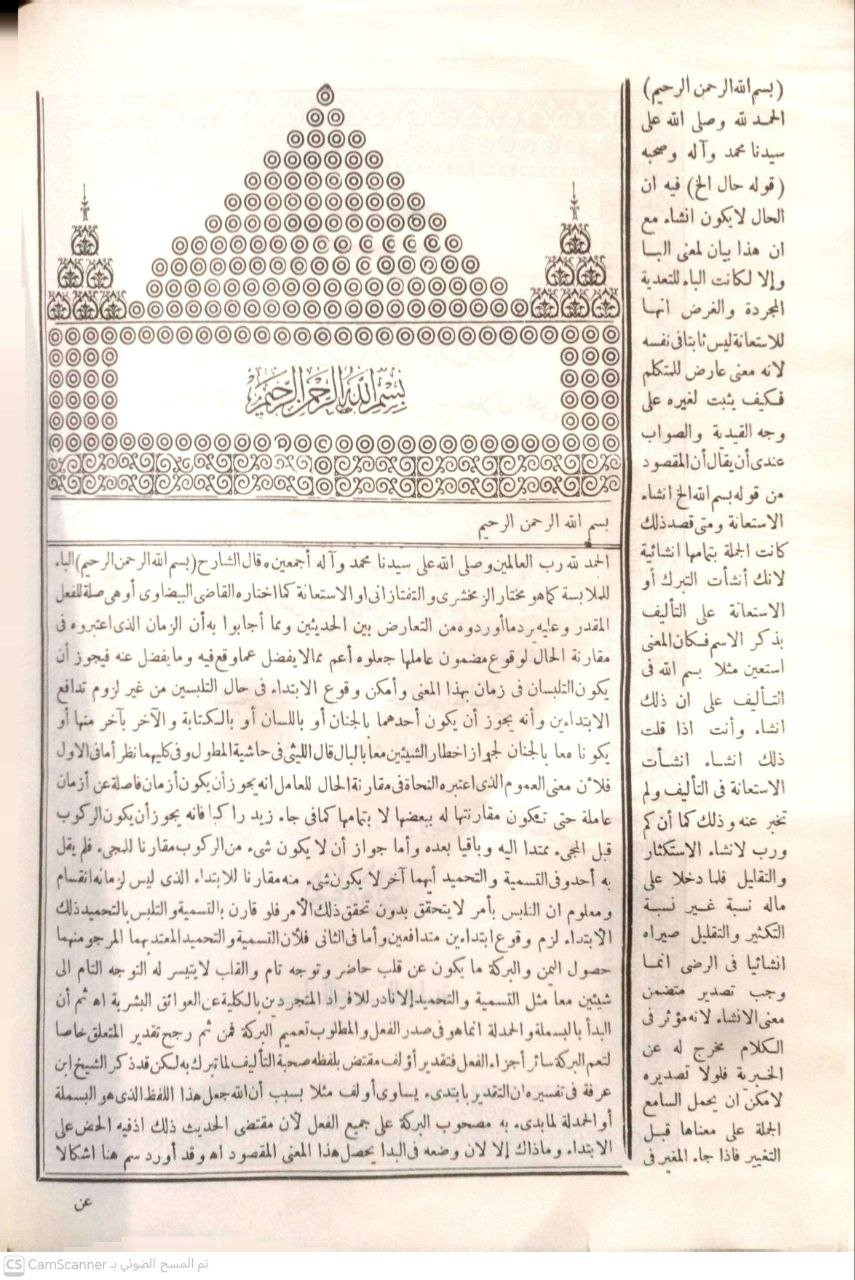 بسم الله الرحمن الرحيم
بسم الله الرحمن الرحيم
الحمد لله رب العالمين وصلى الله على سيدنا محمد وآله أجمعين ه قال الشارح (بسم الله الرحمن الرحيم) الباء
للملابسة كما هو مختار الزمخشرى والتفتازانى او الاستعانة كما اختاره القاضى البيضاوى أو هى صلة للفعل
المقدر وعليه يرد ما أوردوه من التعارض بين الحديثين ومما أجابوا به أن الزمان الذى اعتبروه فى
مقارنة الحال لوقوع مضمون عاملها جعلوه أعم مما لا يفضل عما وقع فيه وما يفضل عنه فيجوز أن
يكون التلبسان فى زمان بهذا المعنى وأمكن وقوع الابتداء فى حال التلبسين من غير لزوم تدافع
الابتداءين وأنه يجوز أن يكون أحدهما بالجنان أو باللسان أو بالكتابة والآخر بآخر منها أو
يكونا معا بالجنان لجواز اخطار الشيئين معا بالبال قال الليثى فى حاشية المطول وفى كليهما نظر أما فى الاول
فلائن معنى العموم الذى اعتبره النحاة فى مقارنة الحال للعامل انه يجوز أن يكون أزمان فاصلة عن أزمان
عاملة حتى تكون مقارنتها له ببعضها لا بتمامها كما فى جاء زيد راكبا فانه يجوز أن يكون الركوب
قبل المجىء ممتدا اليه وباقيا بعده وأما جواز أن لا يكون شىء من الركوب مقارنا للمجىء فلم يقل
به أحد وفى التسمية والتحميد أيهما آخر لا يكون شىء منه مقارنا للابتداء الذى ليس لزمانه انقسام
ومعلوم ان التلبس بأمر لا يتحقق بدون تحقق ذلك الأمر فلو قارن بالتسمية والتلبس بالتحميد ذلك
الابتداء لزم وقوع ابتداءين متدافعين وأما فى الثانى فلأن التسمية والتحميد المعتد بهما المرجو منهما
حصول اليمن والبركة ما يكون عن قلب حاضر وتوجه تام والقلب لا يتيسر له التوجه التام الى
شيئين معا مثل التسمية والتحميد إلا نادر للافراد المتجردين بالكلية عن العوائق البشرية اه ثم أن
البدأ بالبسملة والحمدلة انما هو فى صدر الفعل والمطلوب تعميم البركة فمن ثم رجح تقدير المتعلق خاصا
لتعم البركة سائر أجزاء الفعل فتقدير أؤلف مقتض بلفظه صحبة التأليف لما تبرك به لكن قد ذكر الشيخ ابن
عرفة فى تفسيره ان التقدير بابتدىء يساوى أولف مثلا بسبب أن الله جعل هذا اللفظ الذى هو البسملة
أو الحمدلة لما بدىء به مصحوب البركة على جميع الفعل لأن مقتضى الحديث ذلك اذ فيه الحض على
الابتداء وما ذاك إلا لان وضعه فى البدا يحصل هذا المعنى المقصود اه وقد أورد سم هنا اشكالا
عن
(بسم الله الرحمن الرحيم)
الحمد لله وصلى الله على
سيدنا محمد وآله وصحبه
(قوله حال الخ) فيه ان
الحال لا يكون انشاء مع
ان هذا بيان لمعنى البا
وإلا لكانت الباء للتعدية
المجردة والغرض انها
للاستعانة ليس ثابتا فى نفسه
لانه معنى عارض للمتكلم
فكيف يثبت لغيره على
وجه القيدية والصواب
عندى أن يقال أن المقصود
من قوله بسم الله الخ انشاء
الاستعانة ومتى قصد ذلك
كانت الجملة بتمامها انشائية
لانك أنشأت التبرك أو
الاستعانة على التأليف
بذكر الاسم فكان المعنى
استعين مثلا بسم الله فى
التأليف على ان ذلك
انشاء وأنت اذا قلت
ذلك انشاء انشأت
الاستعانة فى التأليف ولم
تخبر عنه وذلك كما أن كم
ورب لانشاء الاستكثار
والتقليل فلما دخلا على
ماله نسبة غير نسبة
التكثير والتقليل صيراه
انشائيا فى الرضى انما
وجب تصدير متضمن
معنى الانشاء لانه مؤثر فى
الكلام مخرج له عن
الخبرية فلولا تصديره
لامكن ان يحمل السامع
الجملة على معناها قبل
التغيير فاذا جاء المغير فى
CS CamScanner تم المسح الضوئي بـ